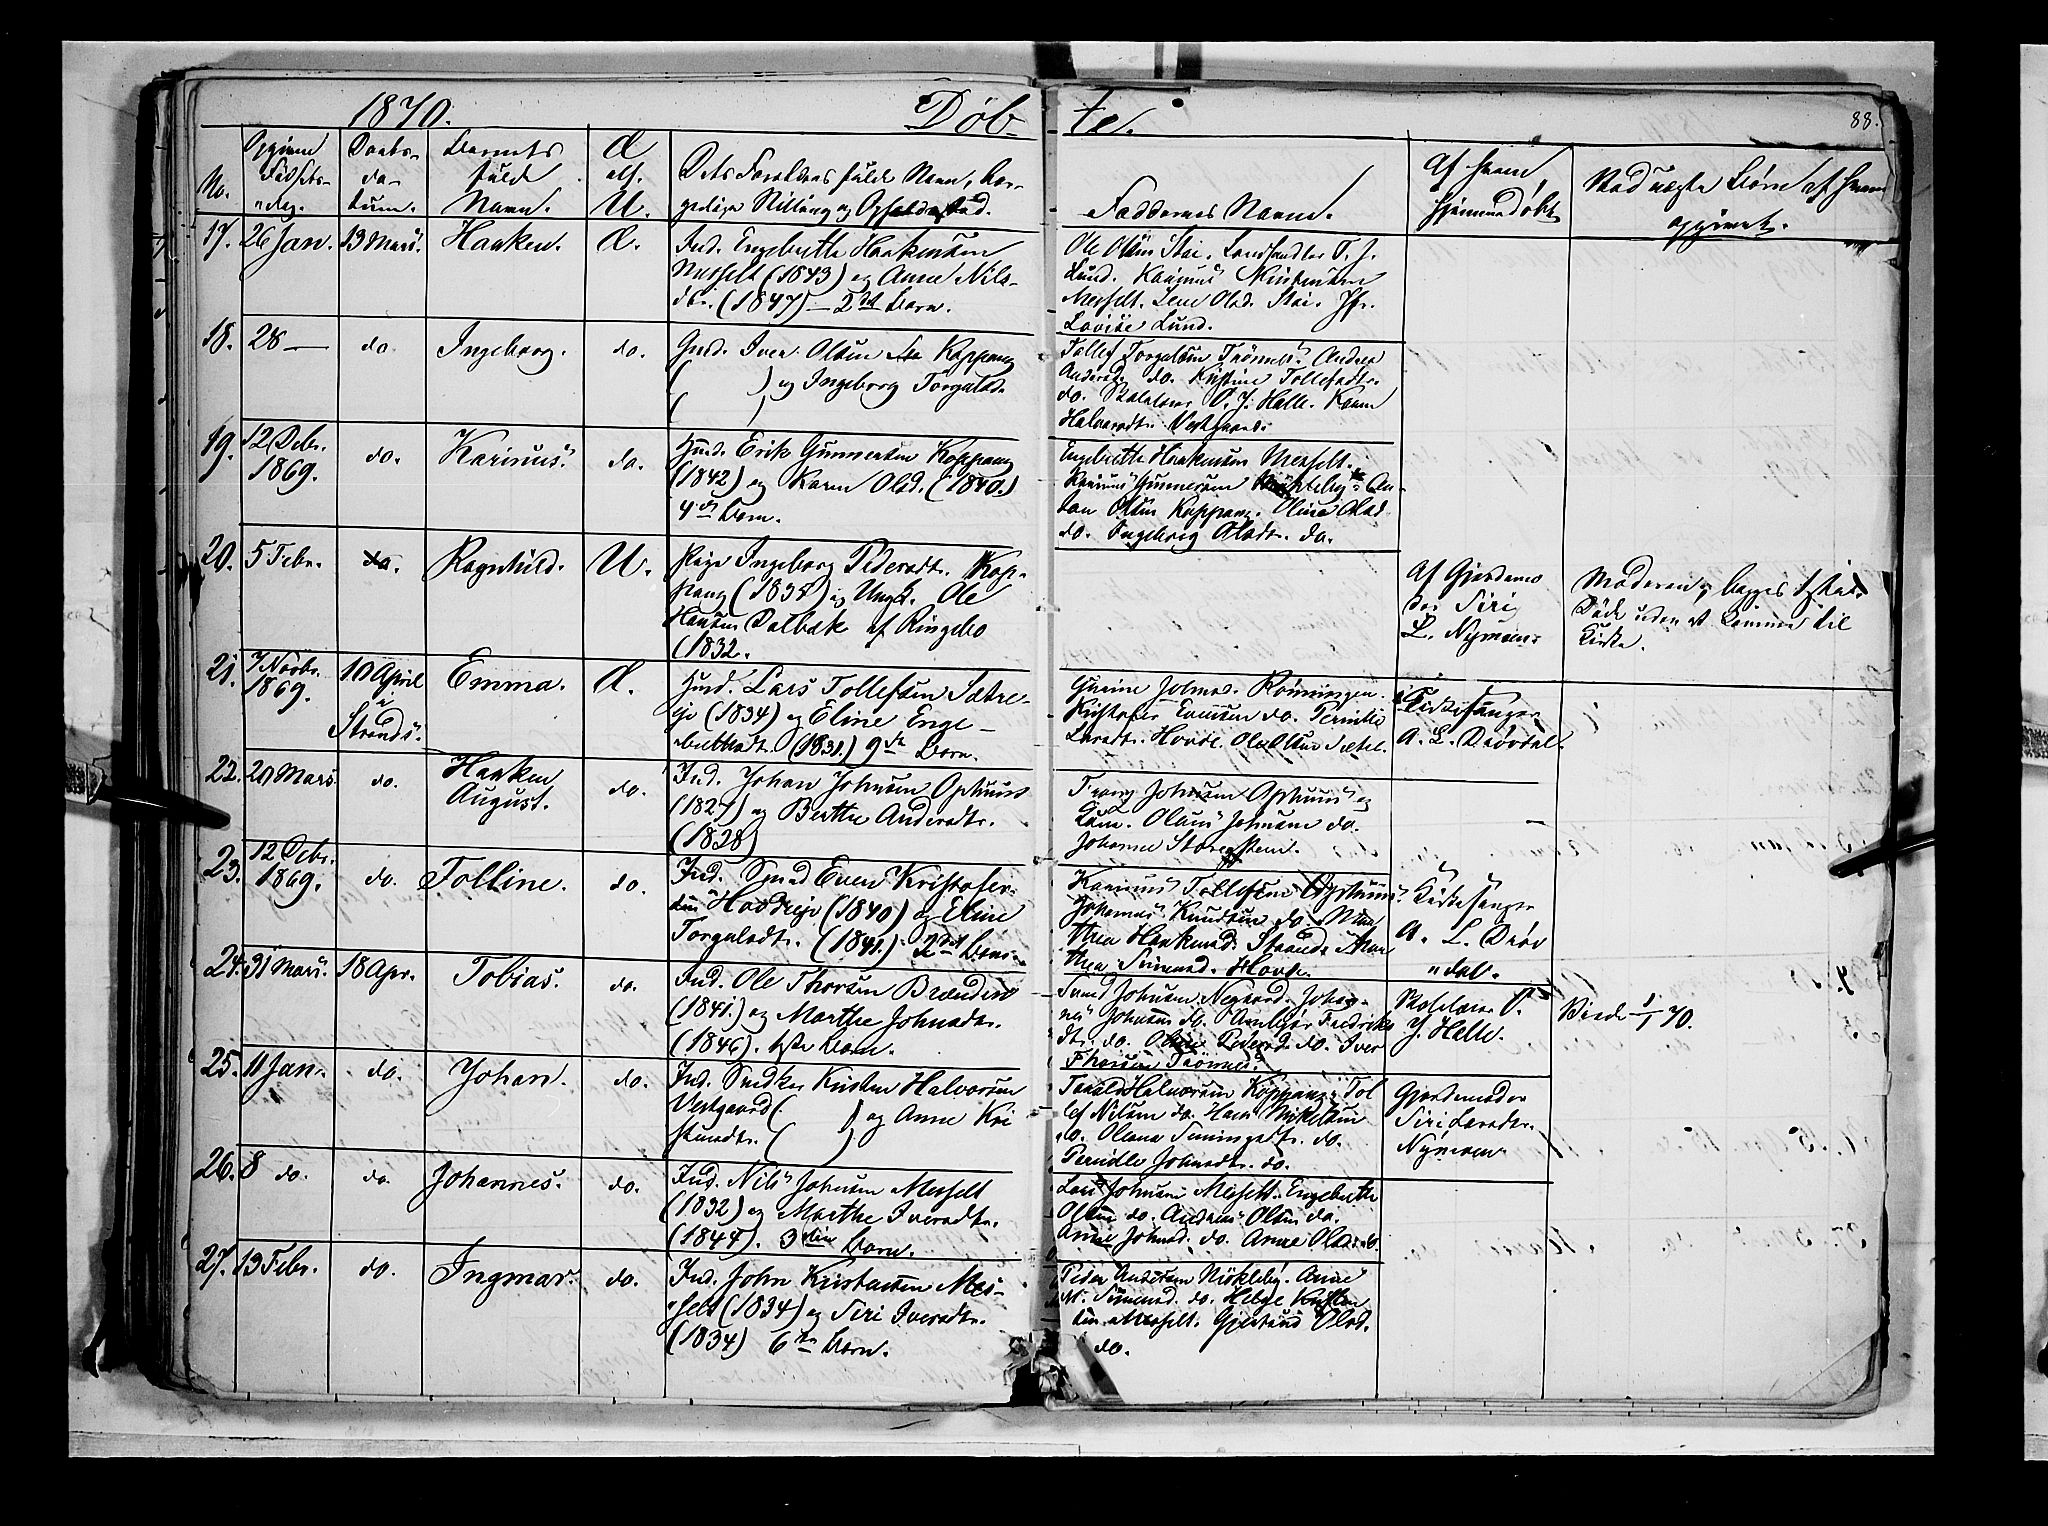 1870. Døb- te. 88.
No.
Opgivne Fødsels-dag.
Daabs-da-tum.
Barnets fulde Navn.
Æ alf. U.
Dets Forældres fulde Navn, bor-
gerlige Stilling og Opholdssted.
Faddernes Navne.
Af hvem hjemmedøbt
opgivet.
17. 26 Jan. 13 Mars. Haaken. Æ.
Ind. Engebrethe Haakensen
Messelt (1843) og Anne Nils-
dtr. (1847) — 2det Barn.
Ole Olsen Stai. Landhandler T. J.
Lund. Karinus
Messelt. Lene Olsd. Stai. Jfr.
Lovise Lund.
18. 28 — do. Ingeborg. do.
Gmd. Iver Olsen Koppang
( ) og Ingeborg Torgalsd.
( )
Tollef Torgalsen Trønnes. Andrea
Andersd. do. Kristine Tollefsdtr.
do. Skolelærer O. J. Halle. Karen
Halvorsdtr. Vestgaard.
19. 12 Debr. 1869. do. Karinus. do.
Husm. Erik Gunnersen Koppang
(1842) og Karen Olsd. (1840.)
4de Barn.
Engebrethe Haakensen Messelt.
Karinus Gunnersen An-
ton Olsen Koppang. Oline Olsd.
do. Ingeborg Olsdtr. do.
20. 5 Febr. do. Ragnhild. U.
Pige Ingeborg Pedersdtr. Kop-
pang (1835) og Ungk. Ole
Hansen Dalbak af Ringebo
(1832.
Af Gjordemo
der Siri
L. Nymoen
Moderen
Døde uden at komme til
Kirke.
21. 7 Novbr. 1869. 10 April i Strands. Emma. Æ.
Husm. Lars Tollefsen Sætre-
ejo (1834) og Eline Enge-
brethsdt. (1831.) 9de Barn.
Gurine Johnsd. Rønningen.
Kristofer Evensen do. Pernille
Larsdtr. Hovde. Ole Olsen Sætre.
Kirkesanger
A. L. Drøvdal.
22. 20 Mars. do. Haaken August. do.
Ind. Johan Johnsen Ophuus
(1827) og Berthe Andersdtr.
(1828)
Trang Johnsen Ophuus og
Kone. Olaus Johnsen do.
Johanne Storesteen.
23. 12 Debr. 1869. do. Tolline. do.
Ind. Smed Even Kristofer-
sen Hovdsejo (1840) og Eline
Torgalsdtr. (1841.) 2det Barn.
Karinus Tollefsen Opshuus.
Johannes Knudsen do. Mar
thea Haakensd. Strand. Mar
thea Simensd. Hovde.
Kirkesanger
A. L. Drøv
"dal.
24. 31 Mars. 18 Apr. Tobias. do.
Ind. Ole Thorsen Brænden
(1841.) og Marthe Johnsdtr.
(1846). 1ste Barn.
Svend Johnsen Negaard. Johan-
nes Johnsen do. Fredriks
dtr. do. Oline Pedersd. do. Iver
Thorsen Trønnes.
Skolelærer O.
J. Halle.
70.
25. 11 Jan. do. Johan. do.
Ind. Snedker Kristen Halvorsen
Vestgaard ( ) og Anne Kri
stensdtr. ( )
Tarald Halvorsen Koppang. Tol
lef Nilsen do. Hans Mikelsen
do. Olana Simingsdtr. do.
Pernille Johnsdtr. do.
Gjordemoder
Siri Larsdtr.
Nymoen
26. 8 do. do. Johannes. do.
Ind. Nils Johnsen Messelt
(1832) og Marthe Iversdtr.
(1844). 3die Barn.
Lars Johnsen Messelt. Engebrethe
Olsen do. Andreas Olsen do.
Anne Johnsd. do. Anne Olsd. do.
27. 13 Febr. do. Ingmar. do.
Ind. John Kristensen Mes-
selt (1834) og Siri Iversdtr.
(1834) 6te Barn.
Peder Andersen Nökleby. Anne
M. Simensd. do. Helge Kristen
sen Messelt. Gjertrud Olsd.
do.